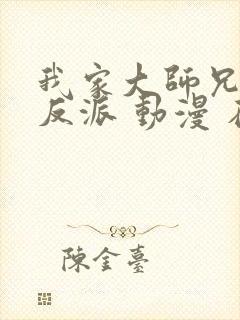 我家大師兄
反派 動漫
陳金臺